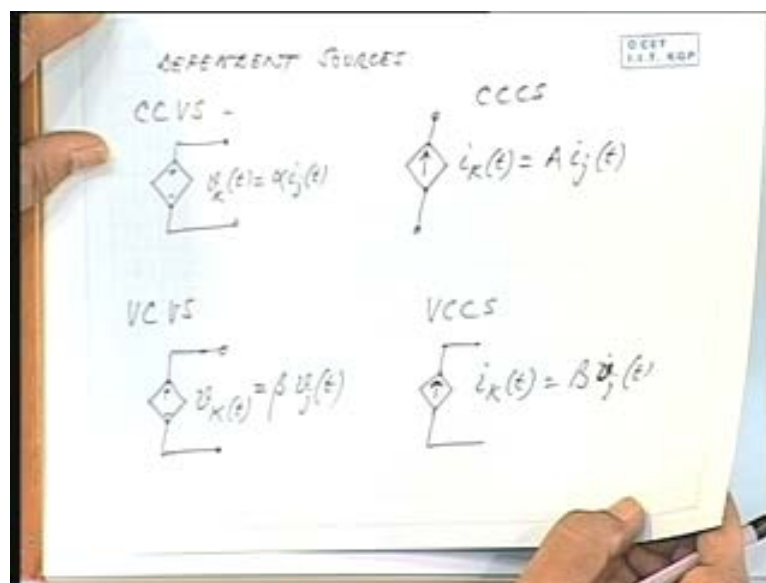 DEPENDENT SOURCES
© CET
I.I.T. KGP
CCVS -
v_k(t) = α i_j(t)
CCCS
i_k(t) = A i_j(t)
VCVS
v_k(t) = β v_j(t)
VCCS
i_k(t) = B v_j(t)